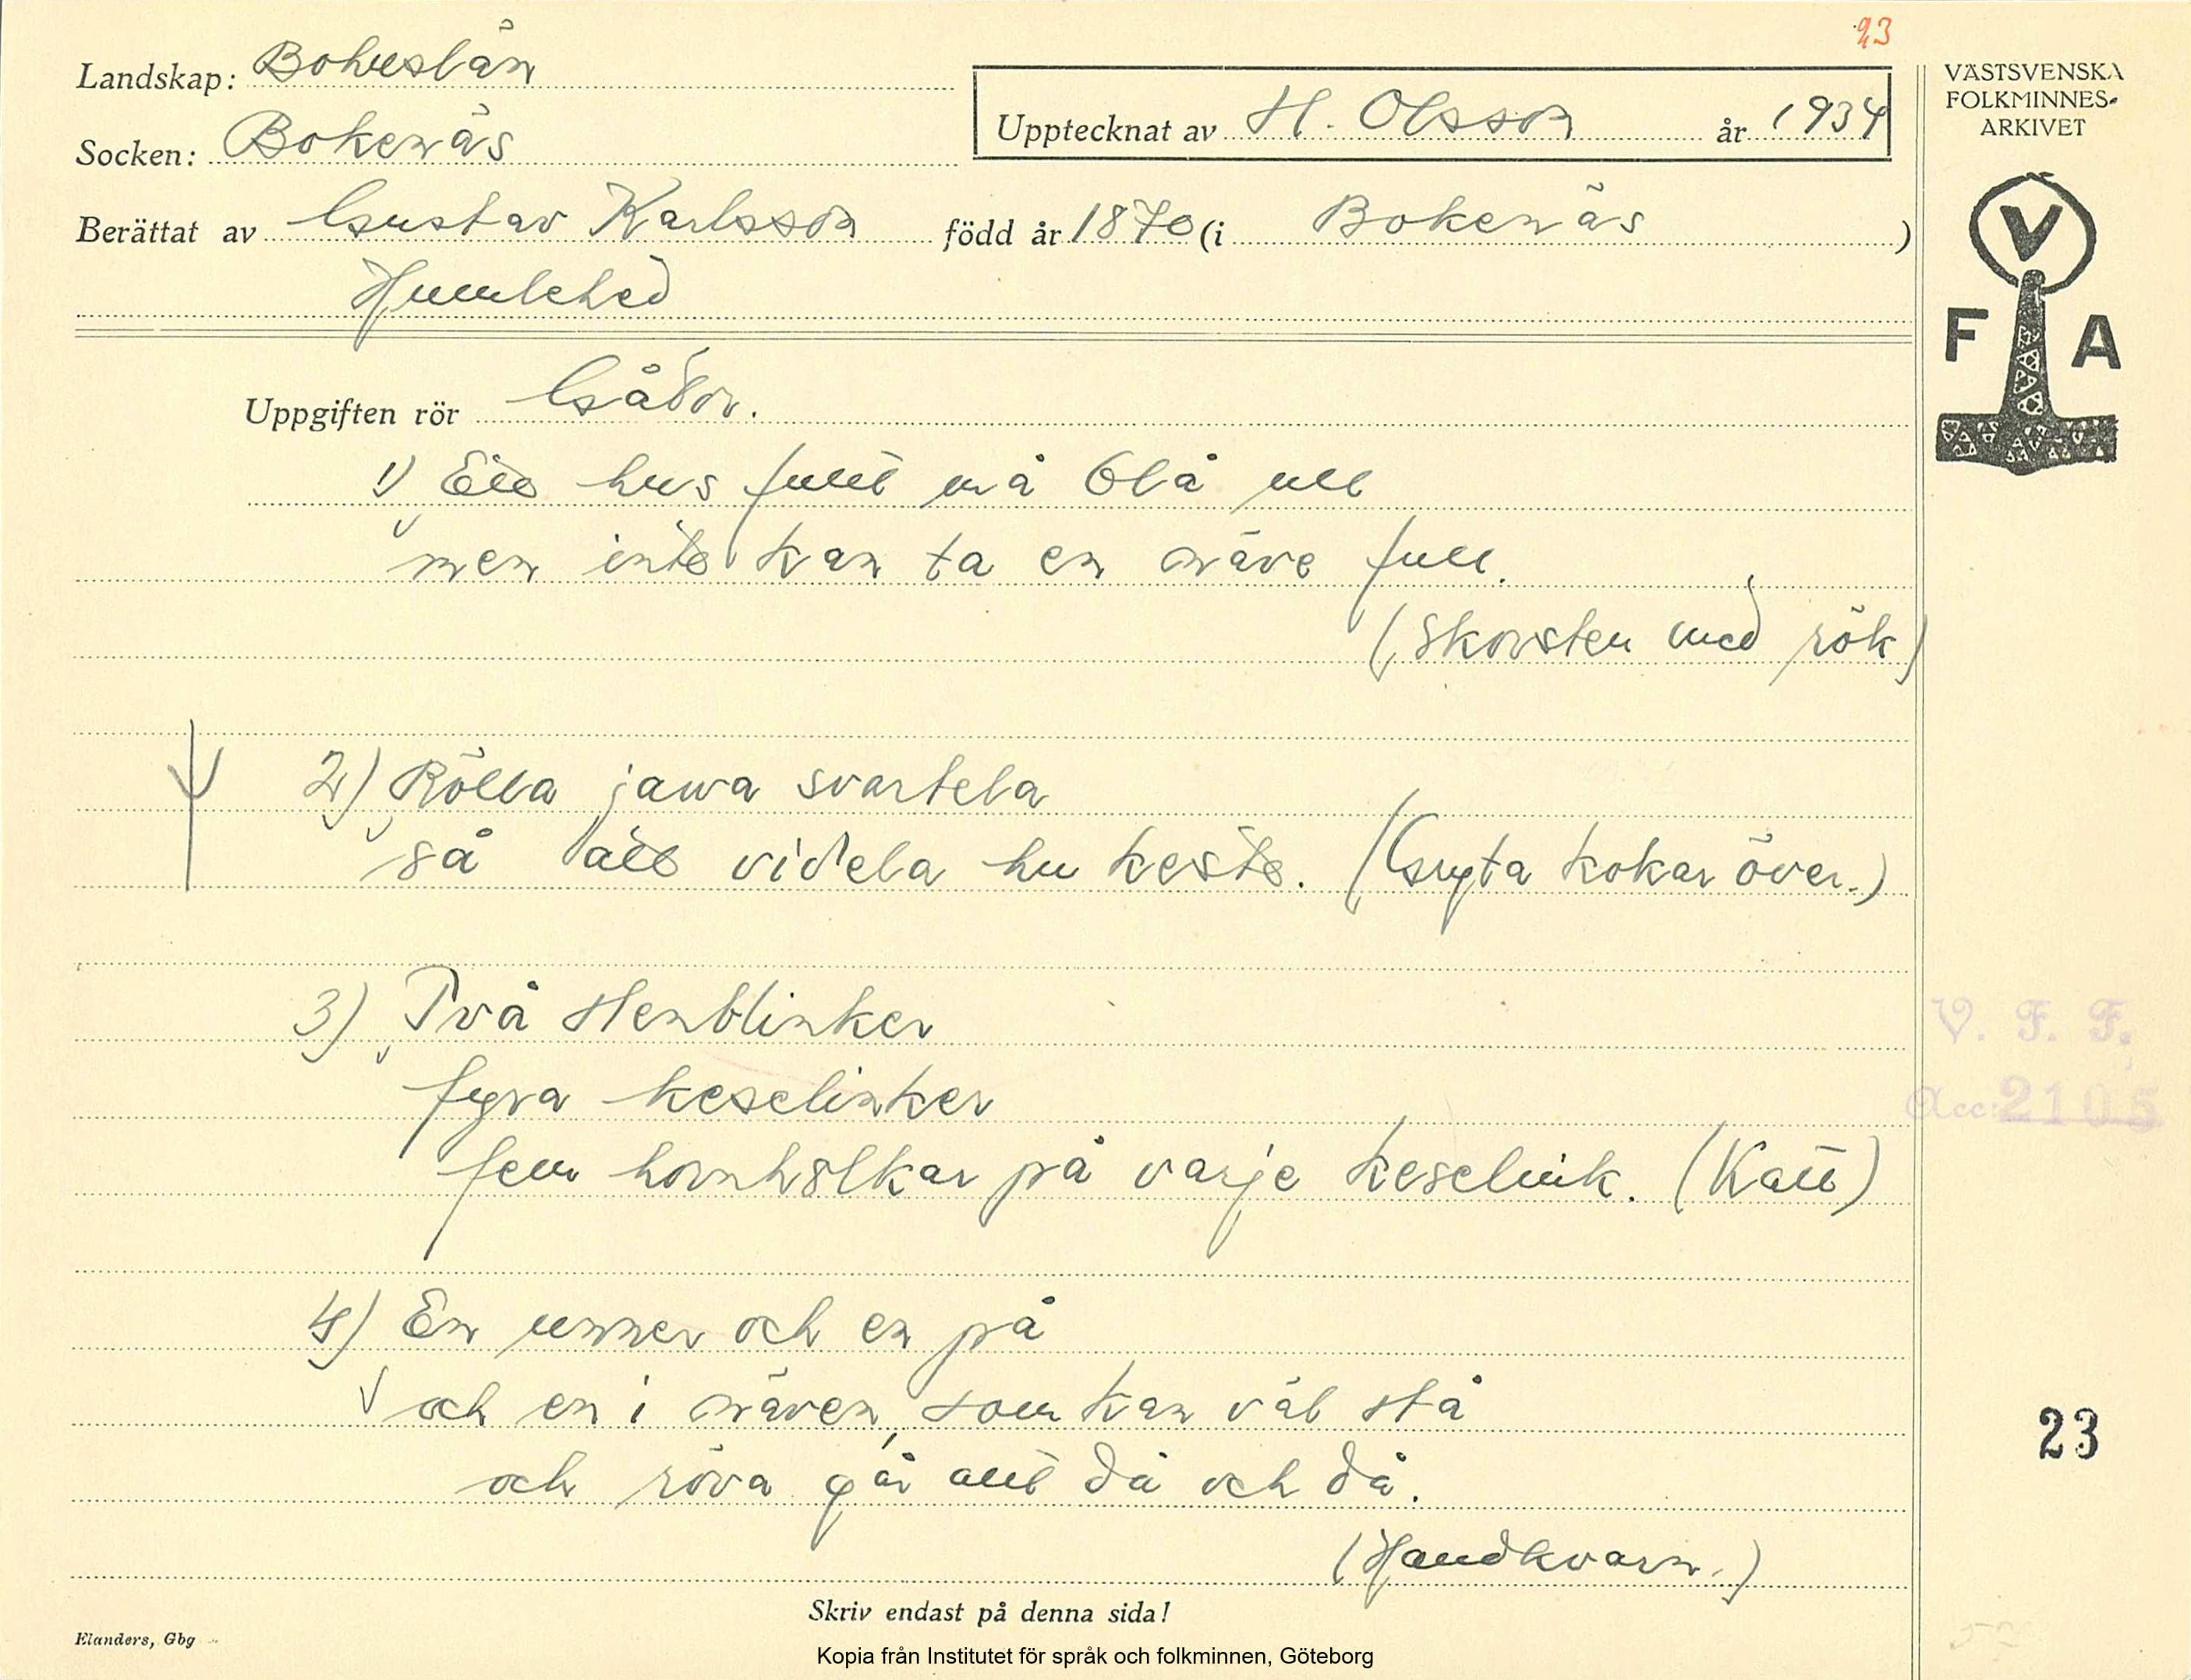 23
Landskap: Bohuslän
Socken: Bokenäs
Upptecknat av H. Olsson år 1934
Berättat av Gustav Karlsson född år 1870 (i Bokenäs)
Humlehed
VÄSTSVENSKA
FOLKMINNES-
ARKIVET
V
F A
Uppgiften rör Gåtor.
1) Ett hus fullt må blå ull
men inte kan ta en näve full.
(Skorsten med rök)
2) Rölla jawa svartela
så att videla hu keste. (Gryta kokar över.)
3) Två Henblinker
fyra keselinker
fem hornhölkar på varje keselink. (Katt)
4) En unner och en på
och en i näven, som kan väl stå
och röva går allt då och då.
(Handkvarn.)
V. F. F.
Acc: 2105
23
Skriv endast på denna sida!
Elanders, Gbg
Kopia från Institutet för språk och folkminnen, Göteborg